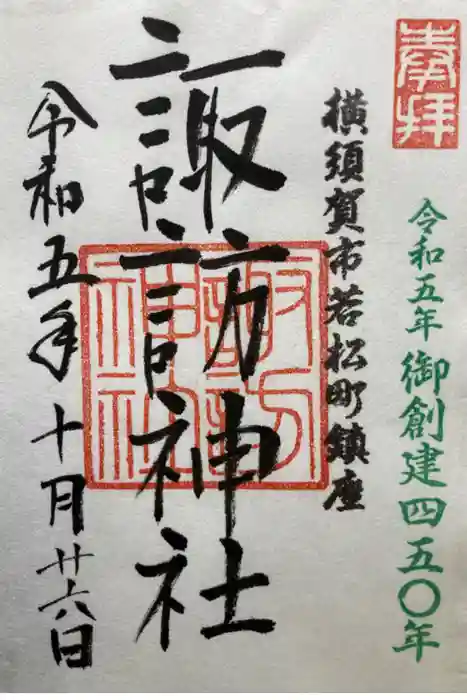 奉拝
令和五年 御創建四五〇年
横須賀市若松町鎮座
諏訪神社
諏訪神社
令和五年十月廿六日